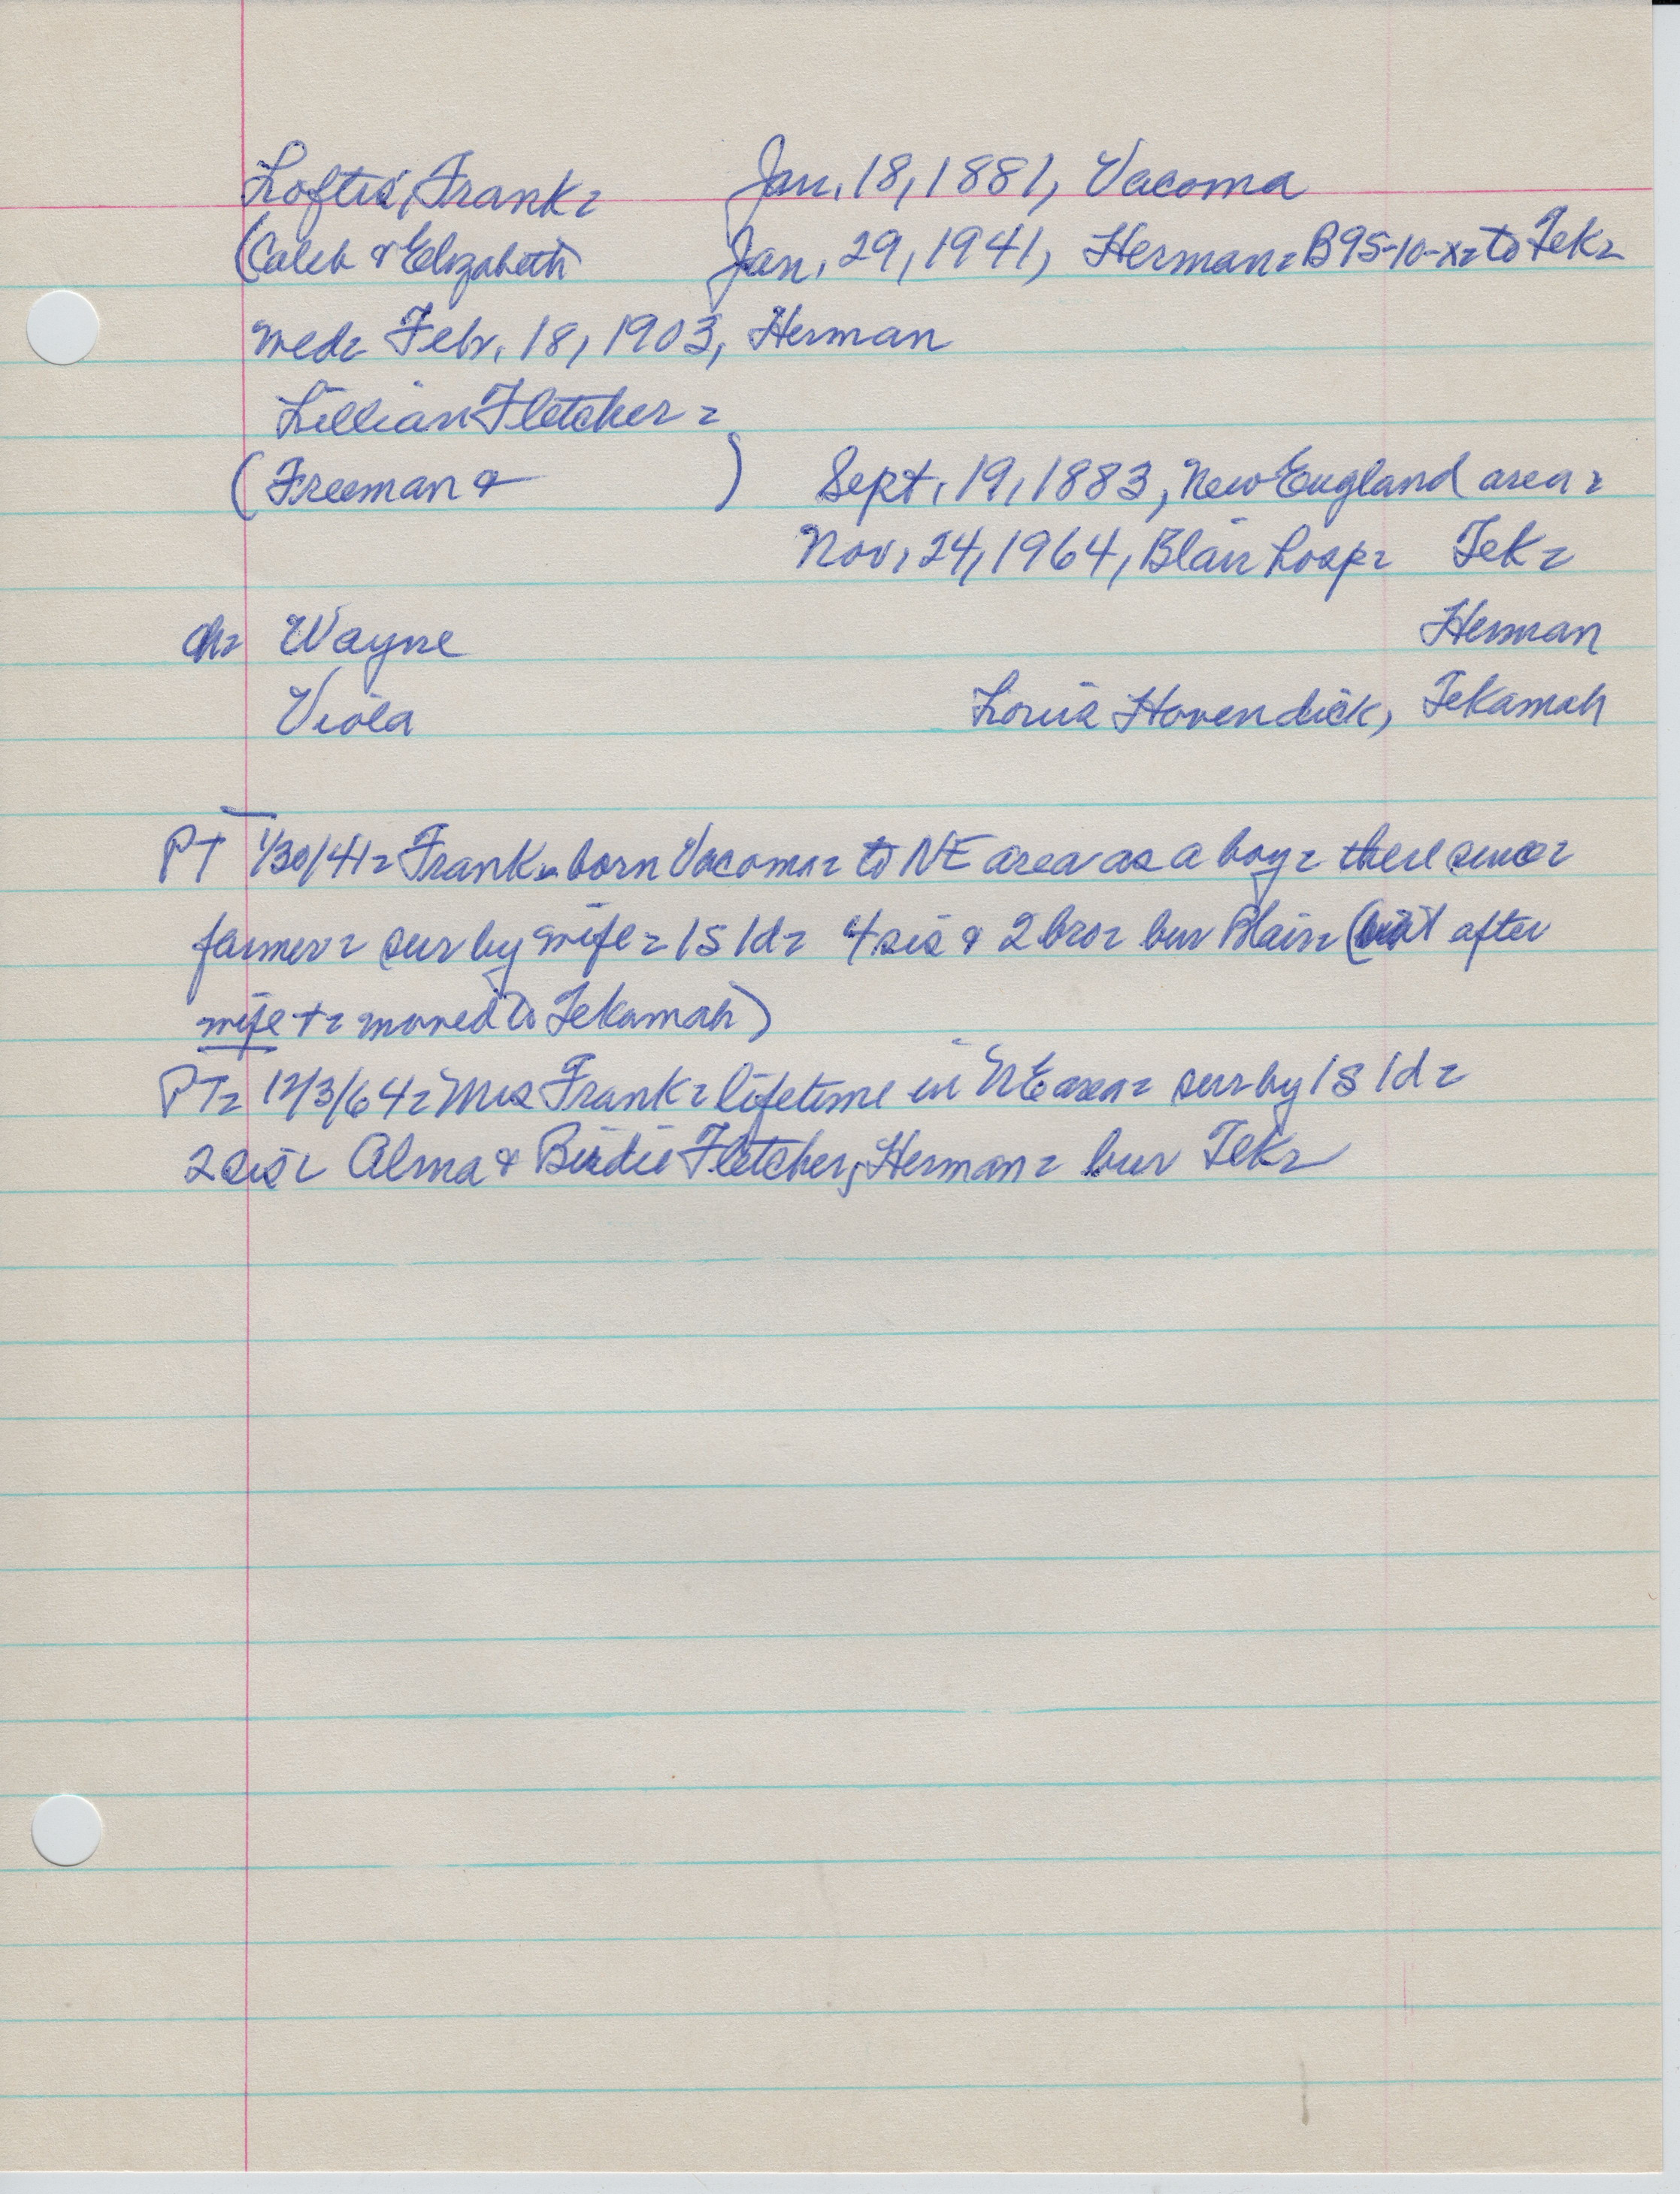 Loftis, Frank- Jan. 18, 1881, Vacoma
(Caleb & Elizabeth Jan. 29, 1941, Herman- B95-10-x- to Tek-
wed- Febr. 18, 1903, Herman
Lillian Fletcher-
(Freeman & ) Sept. 19, 1883, New England area-
Nov. 24, 1964, Blair hosp- Tek-
ch- Wayne Herman
Viola Louis Hovendick, Tekamah
PT 1/30/41- Frank- born Vacoma- to NE area as a boy- there since-
farmer- sur by wife- 1s 1d- 4 sis & 2 bro- bur Blair- ( after
wife +- moved to Tekamah)
PT- 12/3/64- Mrs Frank- lifetime in NE area- sur by 1s 1d-
2 sis- Alma & Birdie Fletcher, Herman- bur Tek-